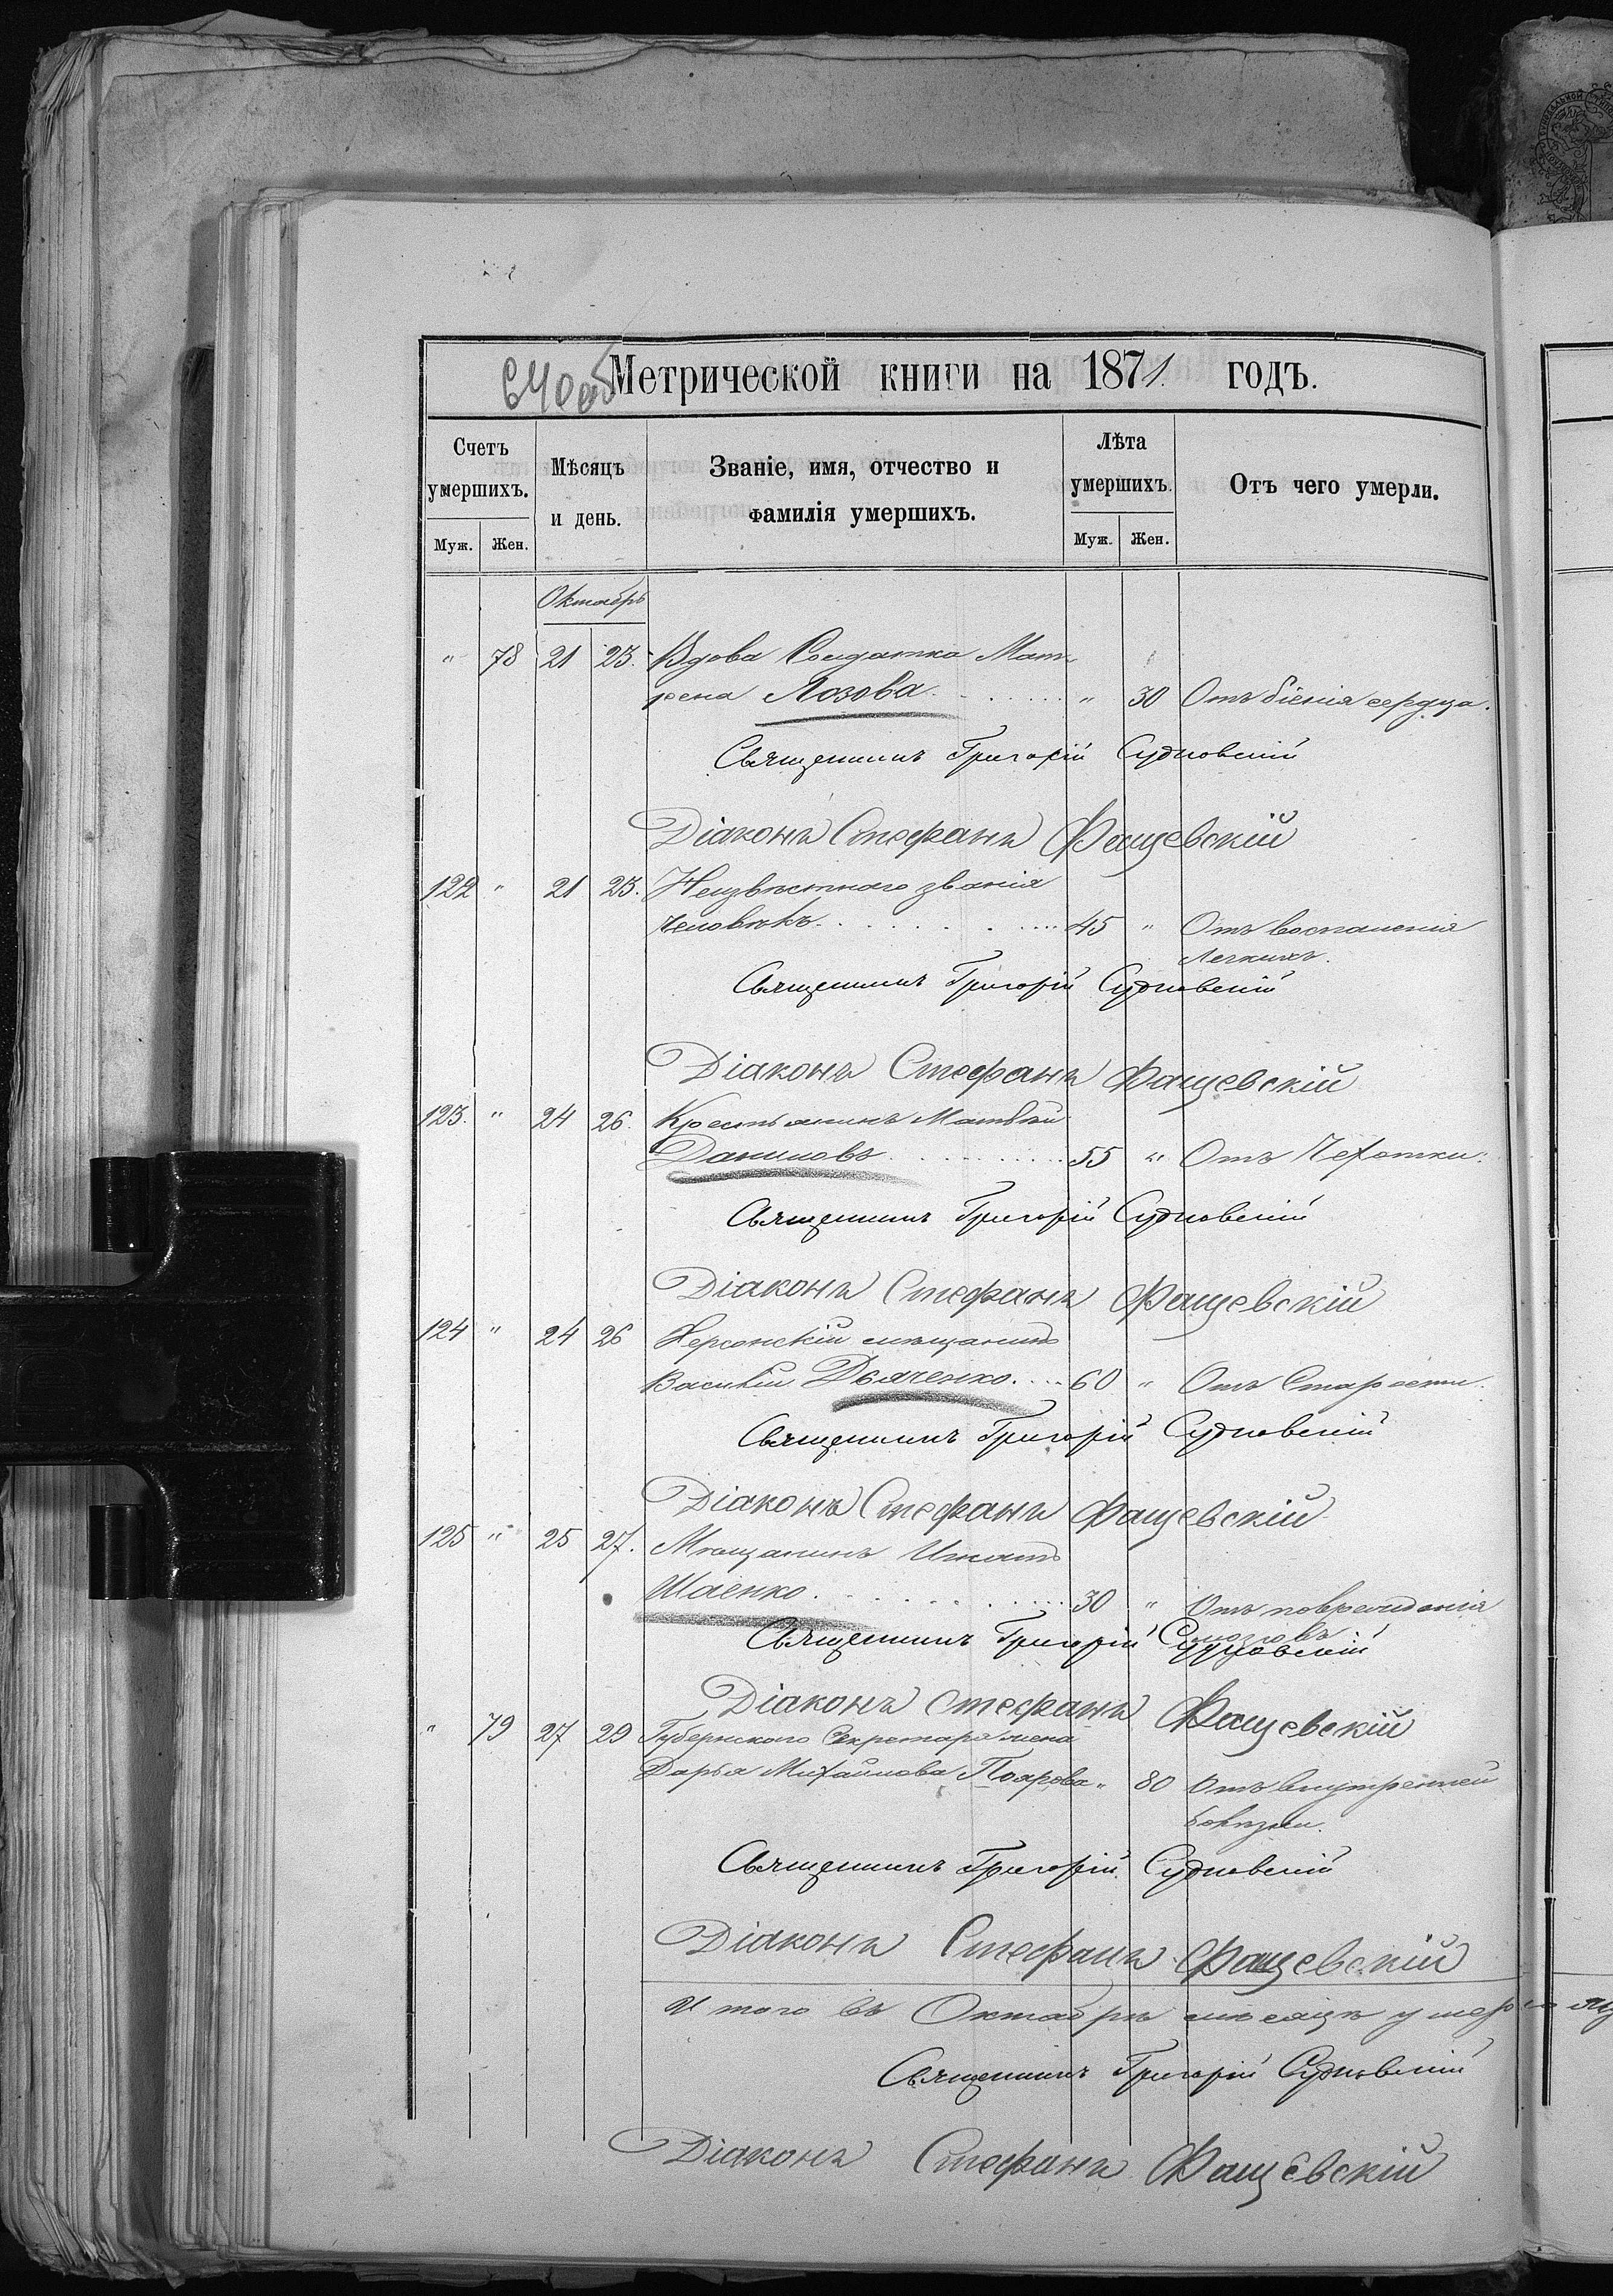 640об
Метрической книги на 1871. годъ.
Счетъ умершихъ.
Муж. Жен.
Мѣсяцъ и день.
Званіе, имя, отчество и фамилія умершихъ.
Лѣта умершихъ.
Муж. Жен.
Отъ чего умерли.
Октябрь
" 78 21 23. Вдова Солдатка Мат-
рена Лозова. " 30 Отъ біенія сердца.
Священникъ Григорій Судковскій
Діаконъ Стефанъ Фащевскій
122 " 21 23. Неизвѣстнаго званія
человѣкъ. 45 " Отъ воспаленія
Легкихъ.
Священникъ Григорій Судковскій
Діаконъ Стефанъ Фащевскій
123. " 24 26. Крестьянинъ Матвѣй
Даниловъ 55 " Отъ Чехотки.
Священникъ Григорій Судковскій
Діаконъ Стефанъ Фащевскій
124 " 24 26 Херсонскій мѣщанинъ
Василій Дьяченко. 60 " Отъ Старости.
Священникъ Григорій Судковскій
Діаконъ Стефанъ Фащевскій
125 " 25 27. Мѣщанинъ Игнатъ
Шаенко. 30 " Отъ поврежденія
мозговъ
Священникъ Григорій Судковскій
Діаконъ Стефанъ Фащевскій
" 79 27 29 Губернского Секретаря жена
Дарья Михайлова Поярова " 80 Отъ внутренней
болѣзни.
Священникъ Григорій Судковскій
Діаконъ Стефанъ Фащевскій
Итого въ Октябрѣ мѣсяцѣ умерло
Священникъ Григорій Судковскій
Діаконъ Стефанъ Фащевскій